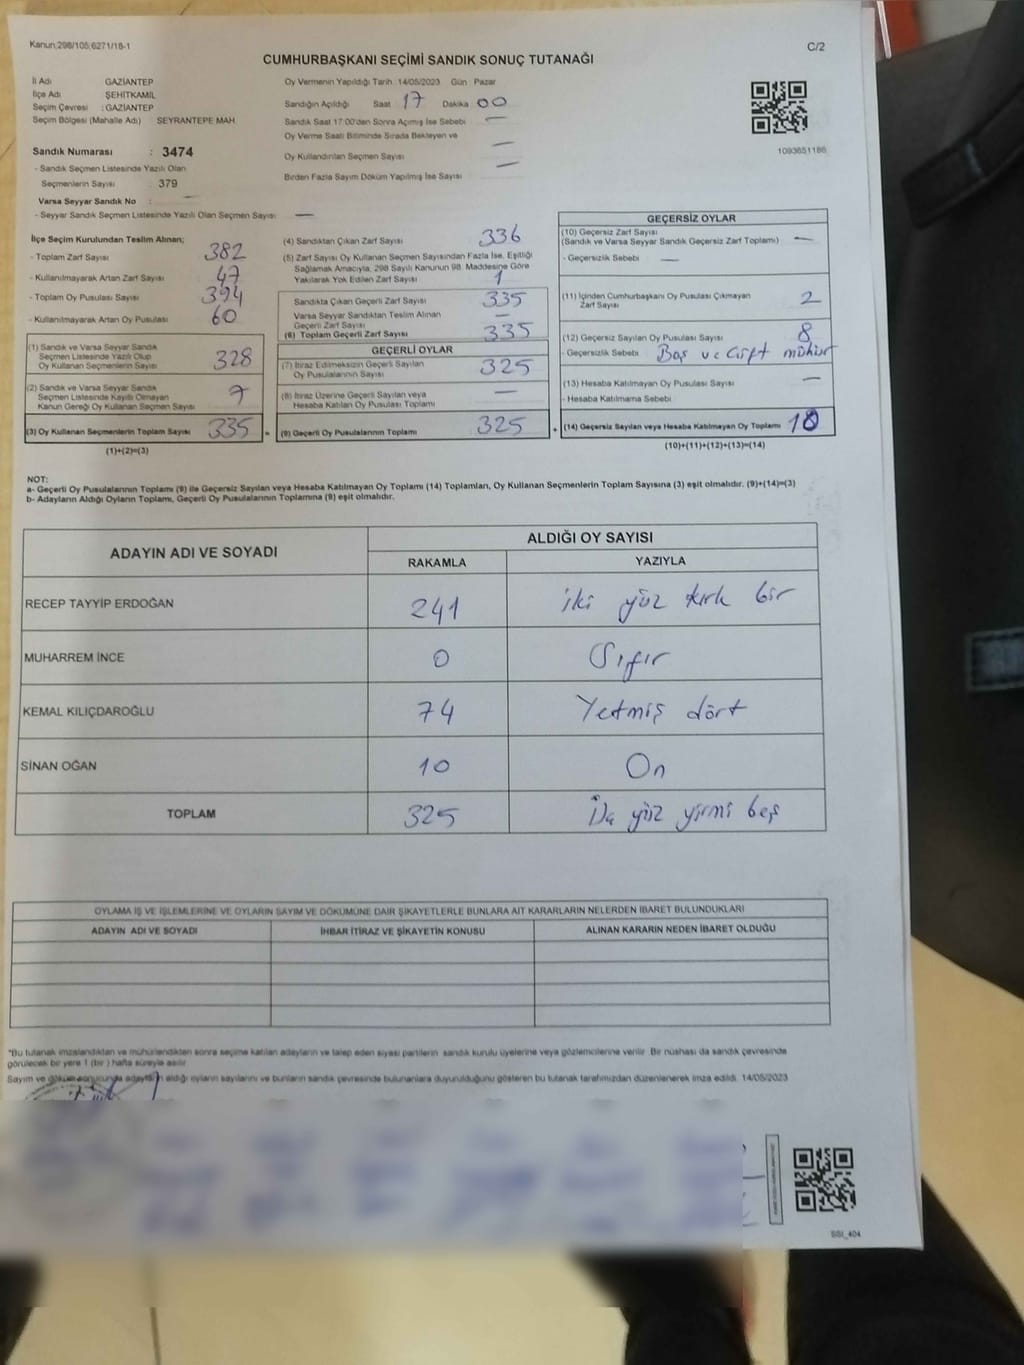 Kanun;298/105;6271/18-1
C/2
CUMHURBAŞKANI SEÇİMİ SANDIK SONUÇ TUTANAĞI
İl Adı GAZİANTEP
İlçe Adı ŞEHİTKAMİL
Seçim Çevresi : GAZİANTEP
Seçim Bölgesi (Mahalle Adı) SEYRANTEPE MAH.
Sandık Numarası : 3474
- Sandık Seçmen Listesinde Yazılı Olan
Seçmenlerin Sayısı 379
Varsa Seyyar Sandık No : —
- Seyyar Sandık Seçmen Listesinde Yazılı Olan Seçmen Sayısı —
Oy Vermenin Yapıldığı Tarih 14/05/2023 Gün Pazar
Sandığın Açıldığı Saat 17 Dakika 00
Sandık Saat 17:00'den Sonra Açımış İse Sebebi —
Oy Verme Saati Bitiminde Sırada Bekleyen ve
Oy Kullandırılan Seçmen Sayısı —
Birden Fazla Sayım Döküm Yapılmış İse Sayısı —
1093651186
İlçe Seçim Kurulundan Teslim Alınan;
- Toplam Zarf Sayısı 382
- Kullanılmayarak Artan Zarf Sayısı 47
- Toplam Oy Pusulası Sayısı 394
- Kullanılmayarak Artan Oy Pusulası 60
(1) Sandık ve Varsa Seyyar Sandık
Seçmen Listesinde Yazılı Olup
Oy Kullanan Seçmenlerin Sayısı 328
(2) Sandık ve Varsa Seyyar Sandık
Seçmen Listesinde Kayıtlı Olmayan
Kanun Gereği Oy Kullanan Seçmen Sayısı 7
(3) Oy Kullanan Seçmenlerin Toplam Sayısı 335
=
(1)+(2)=(3)
(4) Sandıktan Çıkan Zarf Sayısı 336
(5) Zarf Sayısı Oy Kullanan Seçmen Sayısından Fazla İse, Eşitliği
Sağlamak Amacıyla, 298 Sayılı Kanunun 98. Maddesine Göre
Yakılarak Yok Edilen Zarf Sayısı 1
Sandıkta Çıkan Geçerli Zarf Sayısı 335
Varsa Seyyar Sandıktan Teslim Alınan
Geçerli Zarf Sayısı —
(6) Toplam Geçerli Zarf Sayısı 335
GEÇERLİ OYLAR
(7) İtiraz Edilmeksizin Geçerli Sayılan
Oy Pusulalarının Sayısı 325
(8) İtiraz Üzerine Geçerli Sayılan veya
Hesaba Katılan Oy Pusulası Toplamı —
(9) Geçerli Oy Pusulalarının Toplamı 325
+
GEÇERSİZ OYLAR
(10) Geçersiz Zarf Sayısı
(Sandık ve Varsa Seyyar Sandık Geçersiz Zarf Toplamı) —
- Geçersizlik Sebebi —
(11) İçinden Cumhurbaşkanı Oy Pusulası Çıkmayan
Zarf Sayısı 2
(12) Geçersiz Sayılan Oy Pusulası Sayısı 8
- Geçersizlik Sebebi Boş ve Çift mühür
(13) Hesaba Katılmayan Oy Pusulası Sayısı —
- Hesaba Katılmama Sebebi
(14) Geçersiz Sayılan veya Hesaba Katılmayan Oy Toplamı 10
(10)+(11)+(12)+(13)=(14)
NOT:
a- Geçerli Oy Pusulalarının Toplamı (9) ile Geçersiz Sayılan veya Hesaba Katılmayan Oy Toplamı (14) Toplamları, Oy Kullanan Seçmenlerin Toplam Sayısına (3) eşit olmalıdır. (9)+(14)=(3)
b- Adayların Aldığı Oyların Toplamı, Geçerli Oy Pusulalarının Toplamına (9) eşit olmalıdır.
ADAYIN ADI VE SOYADI
ALDIĞI OY SAYISI
RAKAMLA YAZIYLA
RECEP TAYYİP ERDOĞAN 241 iki yüz kırk bir
MUHARREM İNCE 0 Sıfır
KEMAL KILIÇDAROĞLU 74 Yetmiş dört
SİNAN OĞAN 10 On
TOPLAM 325 yüz yirmi beş
OYLAMA İŞ VE İŞLEMLERİNE VE OYLARIN SAYIM VE DÖKÜMÜNE DAİR ŞİKAYETLERLE BUNLARA AİT KARARLARIN NELERDEN İBARET BULUNDUKLARI
ADAYIN ADI VE SOYADI İHBAR İTİRAZ VE ŞİKAYETİN KONUSU ALINAN KARARIN NEDEN İBARET OLDUĞU
*Bu tutanak imzalandıktan ve mühürlendikten sonra seçime katılan adayların ve talep eden siyasi partilerin sandık kurulu üyelerine veya gözlemcilerine verilir. Bir nüshası da sandık çevresinde
görülecek bir yere 1 (bir ) hafta süreyle asılır.
Sayım ve döküm sonucunda adayların aldığı oyların sayılarını ve bunların sandık çevresinde bulunanlara duyurulduğunu gösteren bu tutanak tarafımızdan düzenlenerek imza edildi. 14/05/2023
SSI_404